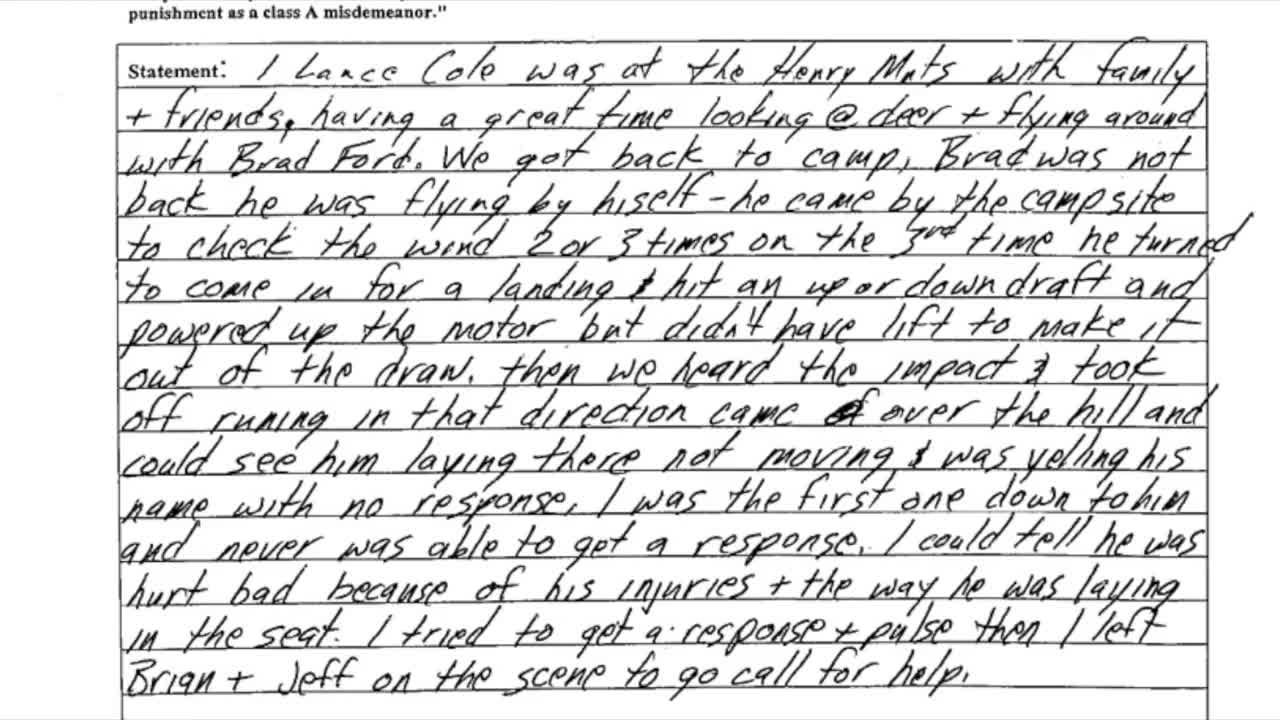 punishment as a class A misdemeanor."
Statement: I Lance Cole was at the Henry Mnts with family
+ friends, having a great time looking @ deer + flying around
with Brad Ford. We got back to camp, Brad was not
back he was flying by hiself - he came by the campsite
to check the wind 2 or 3 times on the 3rd time he turned
to come in for a landing & hit an up or down draft and
powered up the motor but didn't have lift to make it
out of the draw. then we heard the impact & took
off runing in that direction came over the hill and
could see him laying there not moving & was yelling his
name with no response. I was the first one down to him
and never was able to get a response. I could tell he was
hurt bad because of his injuries + the way he was laying
in the seat. I tried to get a response + pulse then I left
Brian + Jeff on the scene to go call for help.